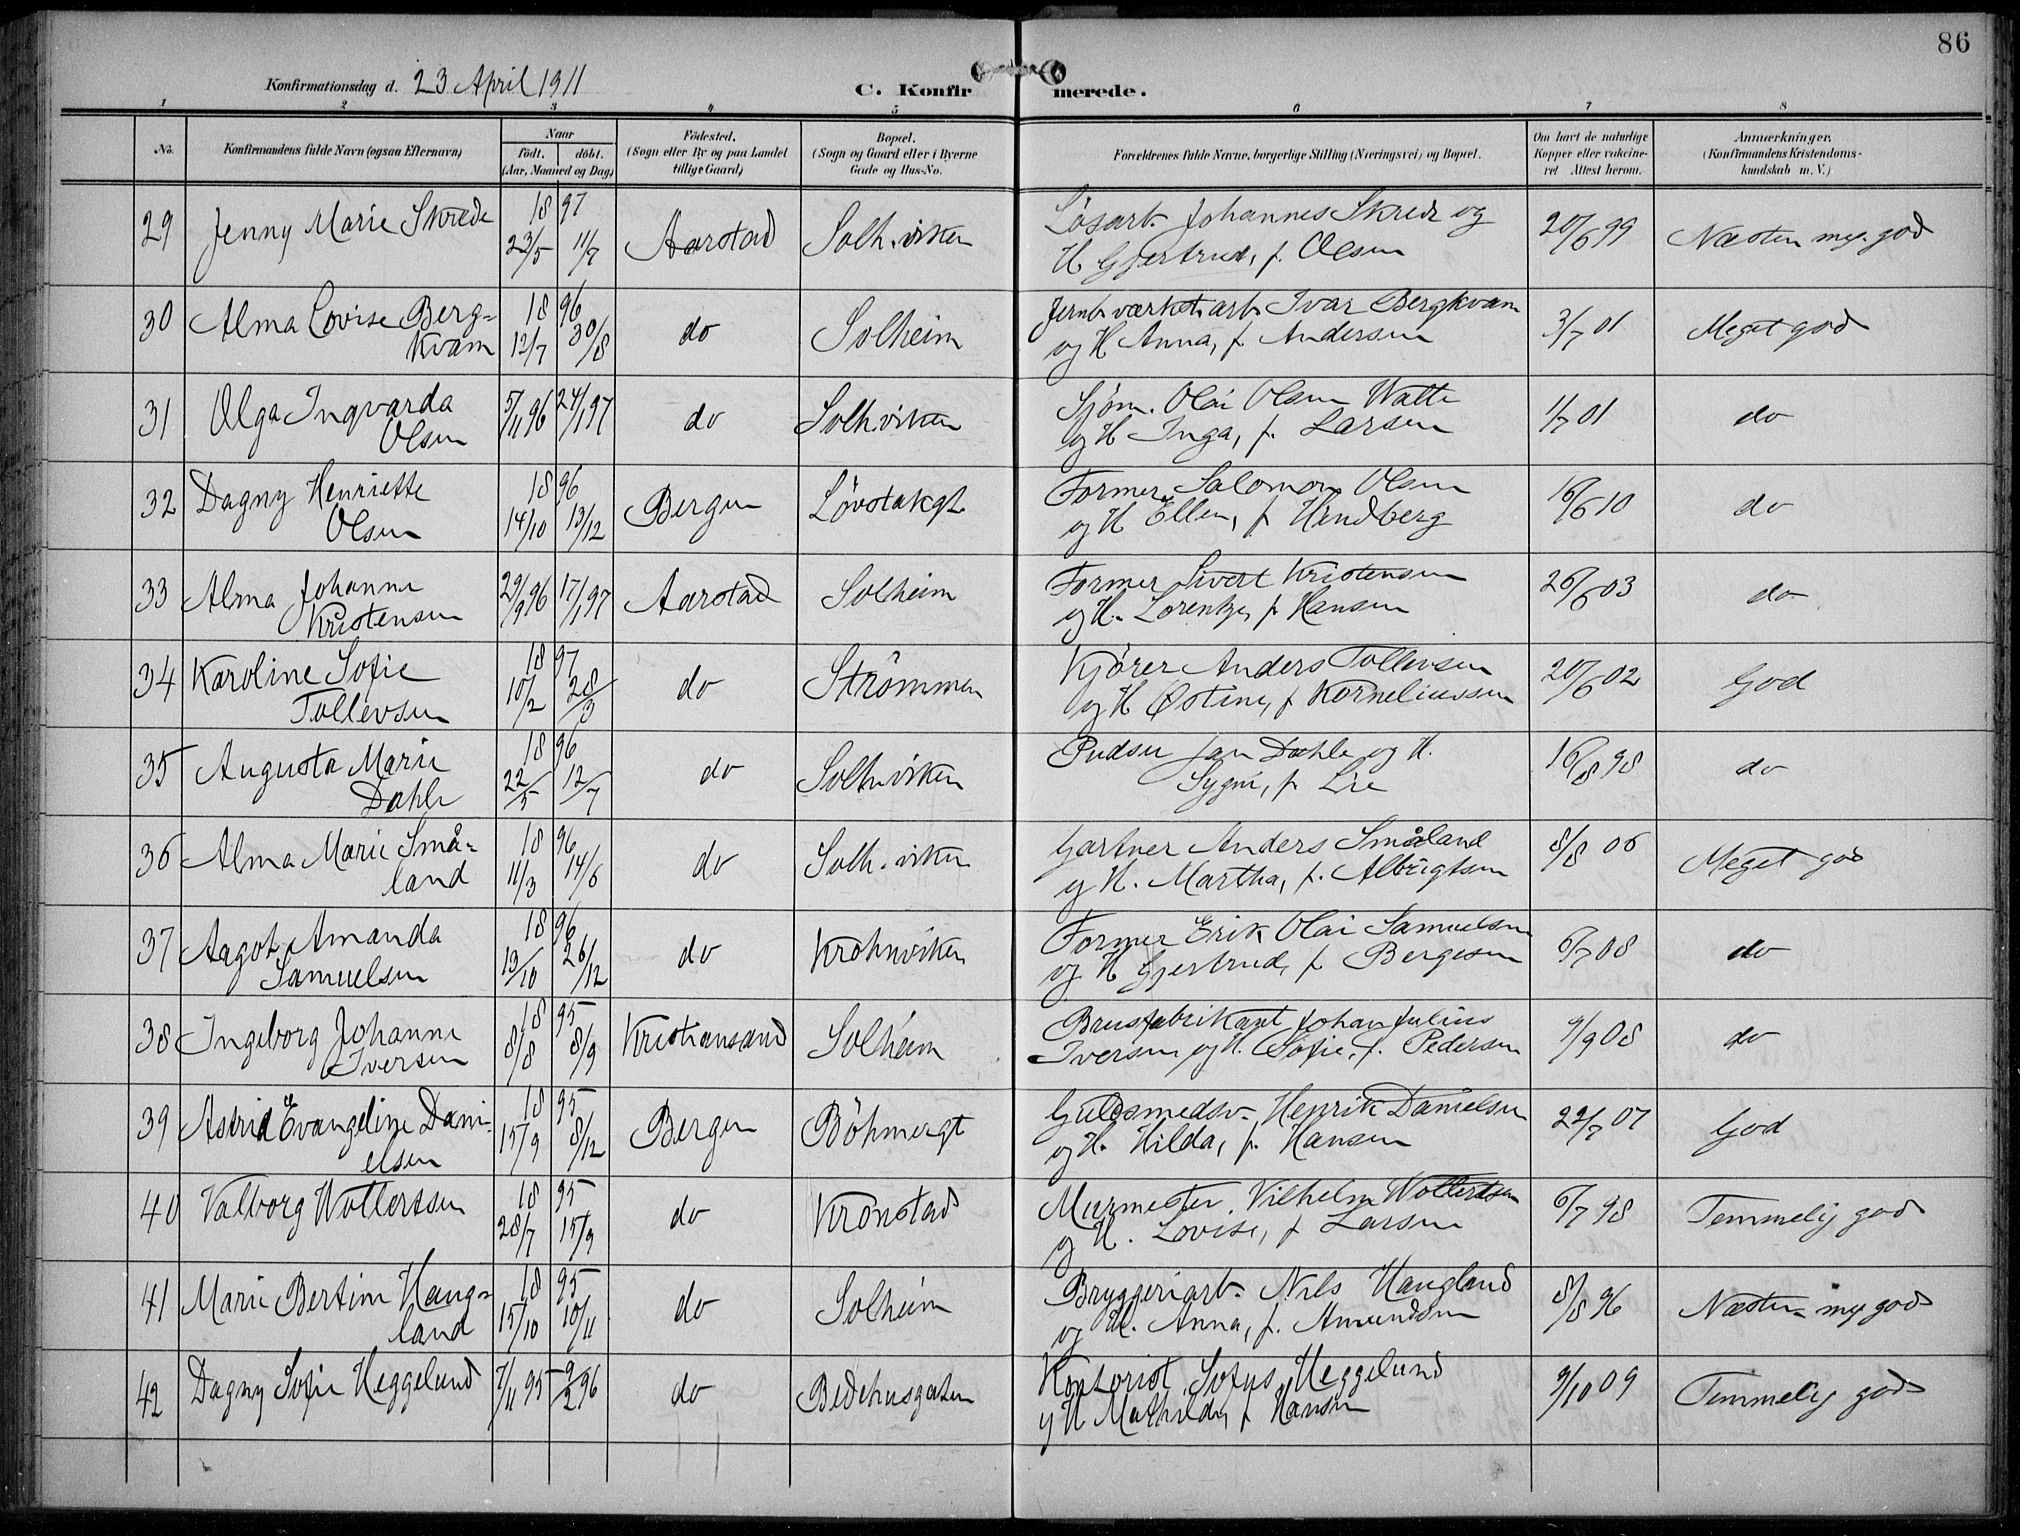 86
Konfirmationsdag d. 23 April 1911
C. Konfirmerede.
1 2 3 4 5 6 7 8
No. Konfirmandens fulde Navn (ogsaa Efternavn) Naar födt. döbt. (Aar, Maaned og Dag) Födested. (Sogn eller By og paa Landet tillige Gaard) Bopæl. (Sogn og Gaard eller i Byerne Gade og Hus-No. Forældrenes fulde Navne, borgerlige Stilling (Næringsvei) og Bopæl. Om havt de naturlige Kopper eller vakcineret Attest herom. Anmærkninger. (Konfirmandens Kristendomskundskab m. V.)
29 Jenny Marie Skrede 18 97 23/5 11/7 Aarstad Solh.viken Løsarb. Johannes Skrede og
H Gjertrud, f. Olsen 20/6 99 Næsten meg. god
30 Alma Lovise Berg-
kvam 18 96 12/7 30/8 do Solheim Jernb.værkst.arb. Ivar Bergkvam
og H Anna, f. Andersen 3/7 01 Meget god
31 Olga Ingvarda
Olsen 5/11 96 24/1 97 do Solh.viken Sjøm. Olai Olsen
og H Inga, f. Larsen 1/7 01 do
32 Dagny Henriette
Olsen 18 96 14/10 13/12 Bergen Løvstakgt Former Salomon Olsen
og H Ellen, f. Hindberg 16/6 10 do
33 Alma Johanne
Kristensen 29/9 96 17/1 97 Aarstad Solheim Former Sivert Kristensen
og H. Lorentze, f. Hansen 26/6 03 do
34 Karoline Sofie
Tollevsen 18 97 10/2 28/3 do Strømmen Kjører Anders Tollevsen
og H Østine, f. Korneliussen 20/6 02 God
35 Augusta Marie
Dahle 18 96 22/5 12/7 do Solh.viken Pudser Jan Dahle og H.
Sygni, f. Lie 16/8 98 do
36 Alma Marie Små-
land 18 96 11/3 14/6 do Solh.viken Gartner Anders Småland
og H. Martha, f. Albrigtsen 8/8 06 Meget god
37 Aagot Amanda
Samuelsen 18 96 13/10 26/12 do Krohnviken Former Erik Olai Samuelsen
og H Gjertrud, f. Bergesen 6/7 08 do
38 Ingeborg Johanne
Iversen 18 95 8/8 8/9 Kristiansand Solheim Brusfabrikant Johan Julius
Iversen og H. Sofie, f. Pedersen 9/9 08 do
39 Astrid Evangeline Dani-
elsen 18 95 15/9 8/12 Bergen Böhmergt Guldsmedsv. Henrik Danielsen
og H. Hilda, f. Hansen 22/7 07 God
40 Valborg Wollertsen 18 95 28/7 15/9 do Kronstad Murmester Vilhelm Wollertsen
og H. Lovise, f. Larsen 6/7 98 Temmelig god
41 Marie Bertine Haug-
land 18 95 15/10 10/11 do Solheim Bryggeriarb. Nils Haugland
og H. Anna, f. Amundsen 8/8 96 Næsten meg god
42 Dagny Sofie Heggelund 7/11 95 9/2 96 do Bedehusgaten Kontorist Sofus Heggelund
og H Mathilde, f. Hansen 9/10 09 Temmelig god